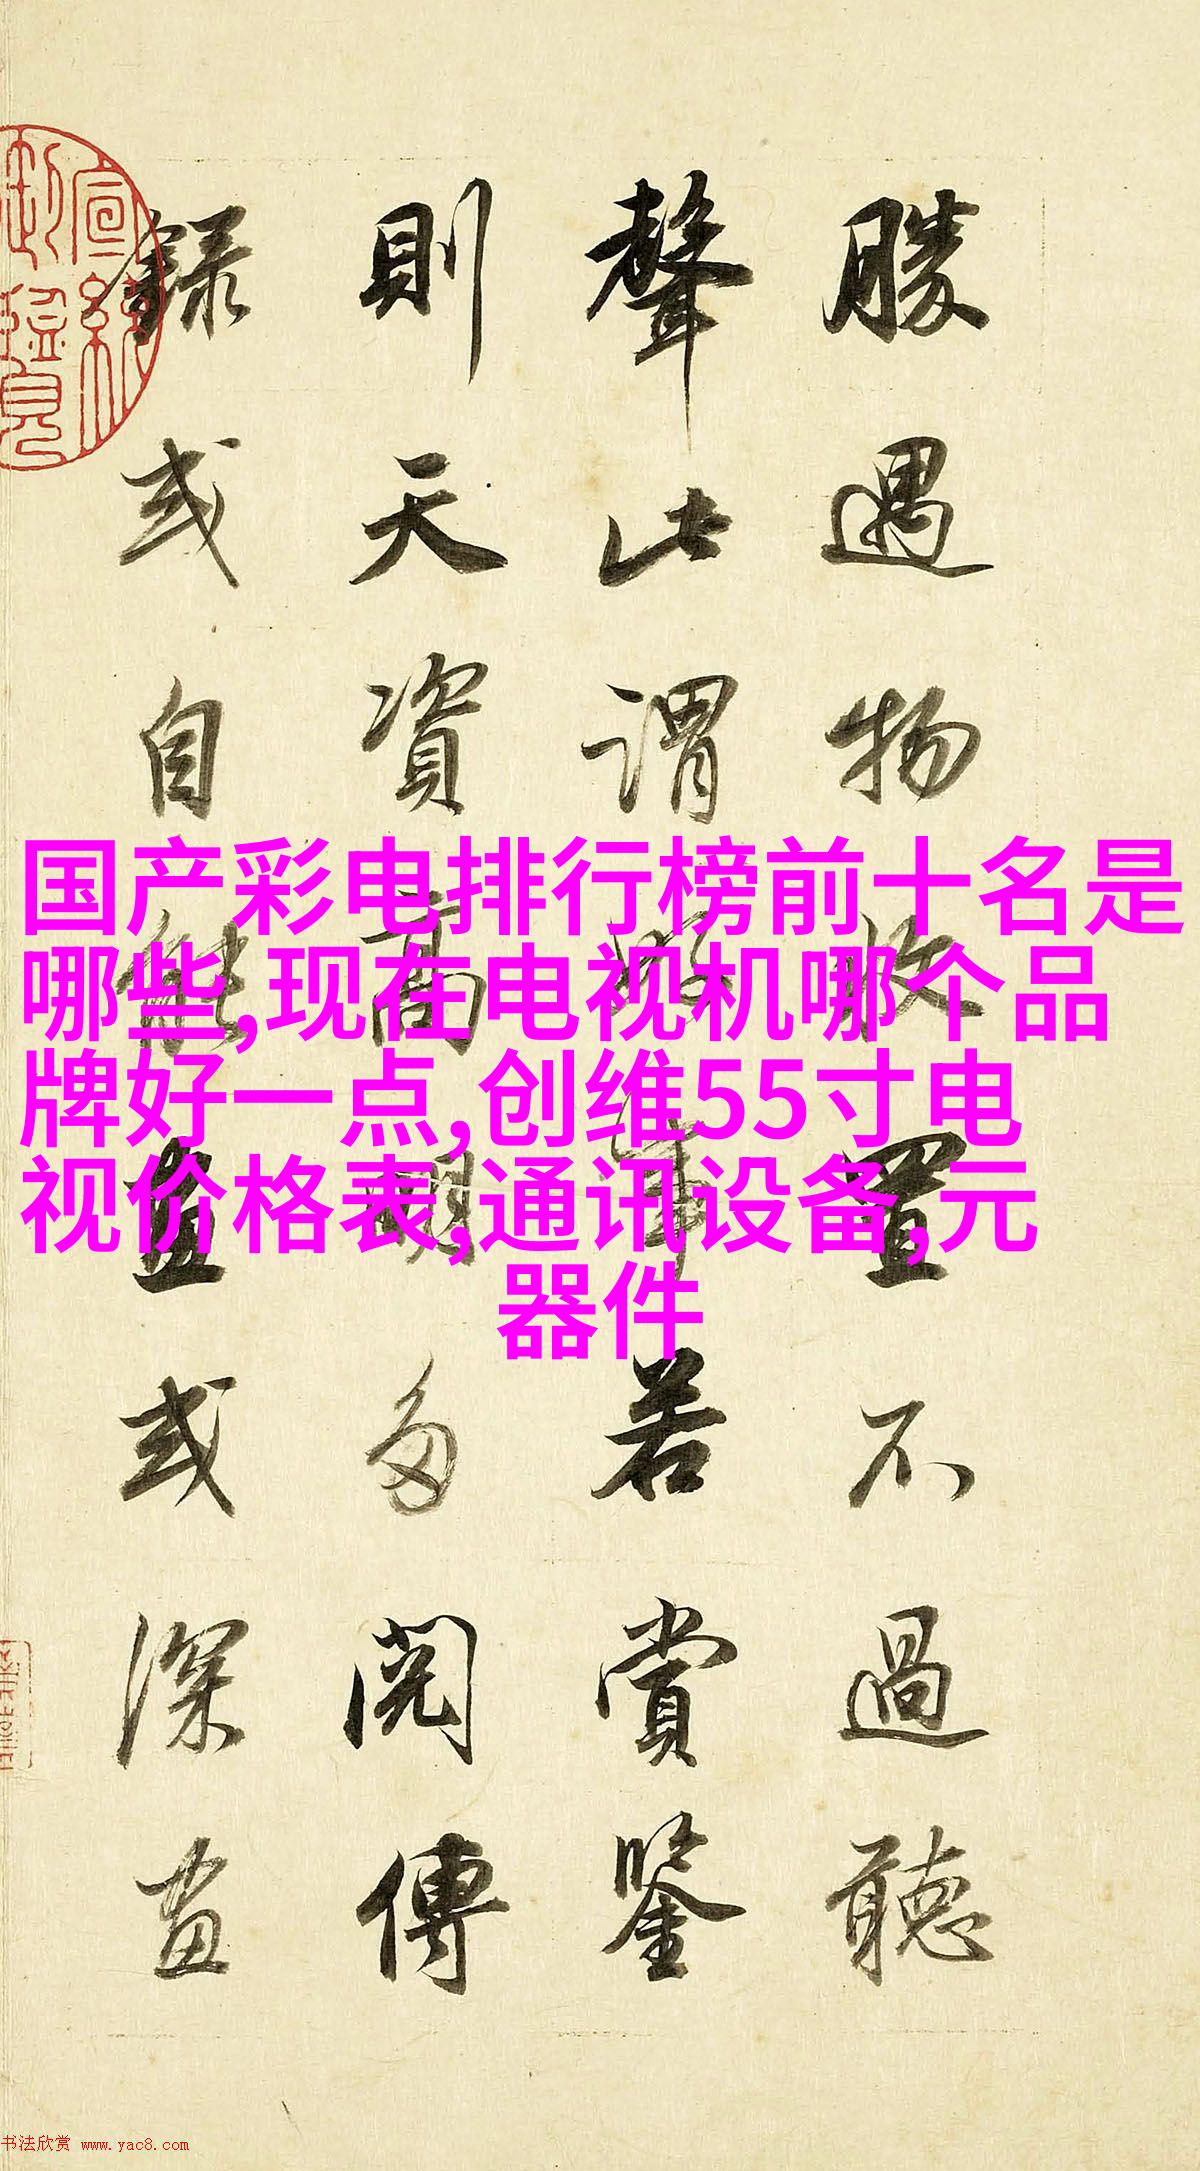 勝遇物收置不過聽
聲此謂好事若賞鑒
則天資高明多閱傳
錄或自能畫或深畫
宣統御覽
国产彩电排行榜前十名是
哪些,现在电视机哪个品
牌好一点,创维55寸电
视价格表,通讯设备,元
器件
书法欣赏 www.yac8.com